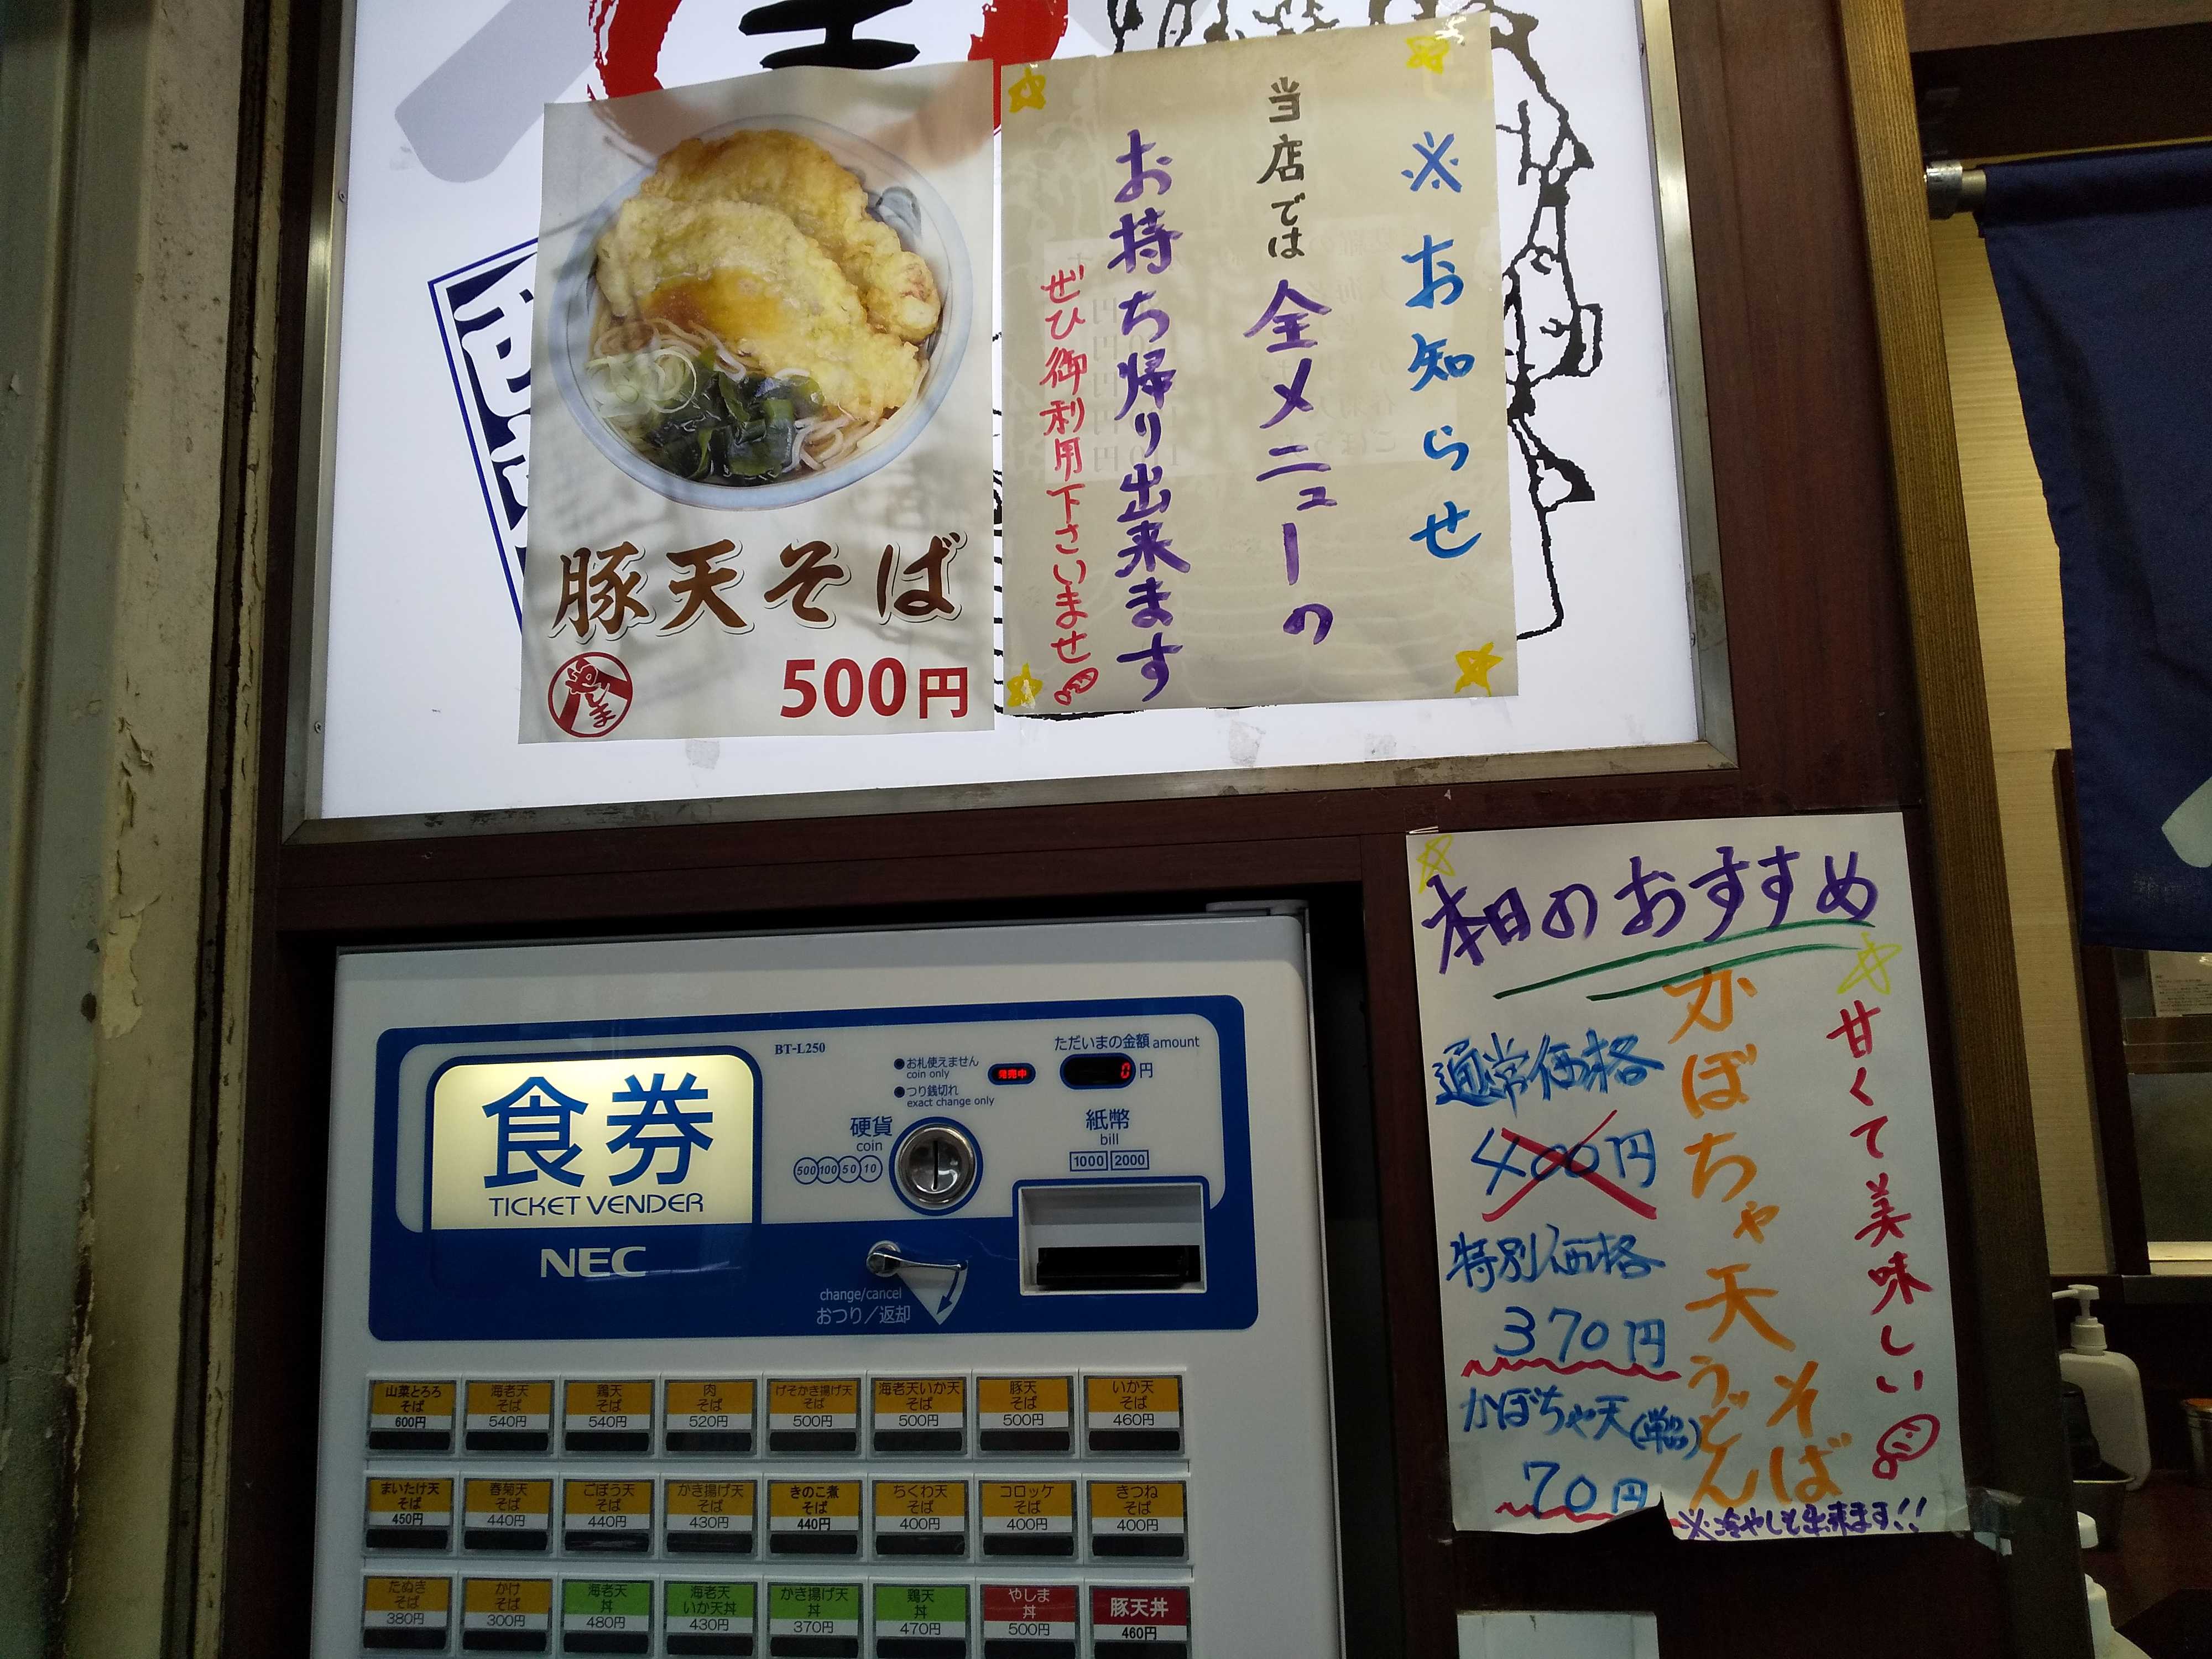 豚天そば
やしま
500円
※お知らせ
当店では全メニューの
お持ち帰り出来ます
ぜひ御利用下さいませ
本日のおすすめ
甘くて美味しい
かぼちゃ天
そば
うどん
通常価格
400円
特別価格
370円
かぼちゃ天(単品)
70円
※冷やしも出来ます!!
食券
TICKET VENDER
NEC
BT-L250
●お札使えません
coin only
●つり銭切れ
exact change only
発売中
ただいまの金額 amount
0円
硬貨
coin
500 100 50 10
紙幣
bill
1000 2000
change/cancel
おつり/返却
山菜とろろ
そば
600円
海老天
そば
540円
鶏天
そば
540円
肉
そば
520円
げそかき揚げ天
そば
500円
海老天いか天
そば
500円
豚天
そば
500円
いか天
そば
460円
まいたけ天
そば
450円
春菊天
そば
440円
ごぼう天
そば
440円
かき揚げ天
そば
430円
きのこ煮
そば
440円
ちくわ天
そば
400円
コロッケ
そば
400円
きつね
そば
400円
たぬき
そば
380円
かけ
そば
300円
海老天
丼
480円
海老天
いか天丼
430円
かき揚げ天
丼
370円
鶏天
丼
470円
やしま
丼
500円
豚天丼
460円